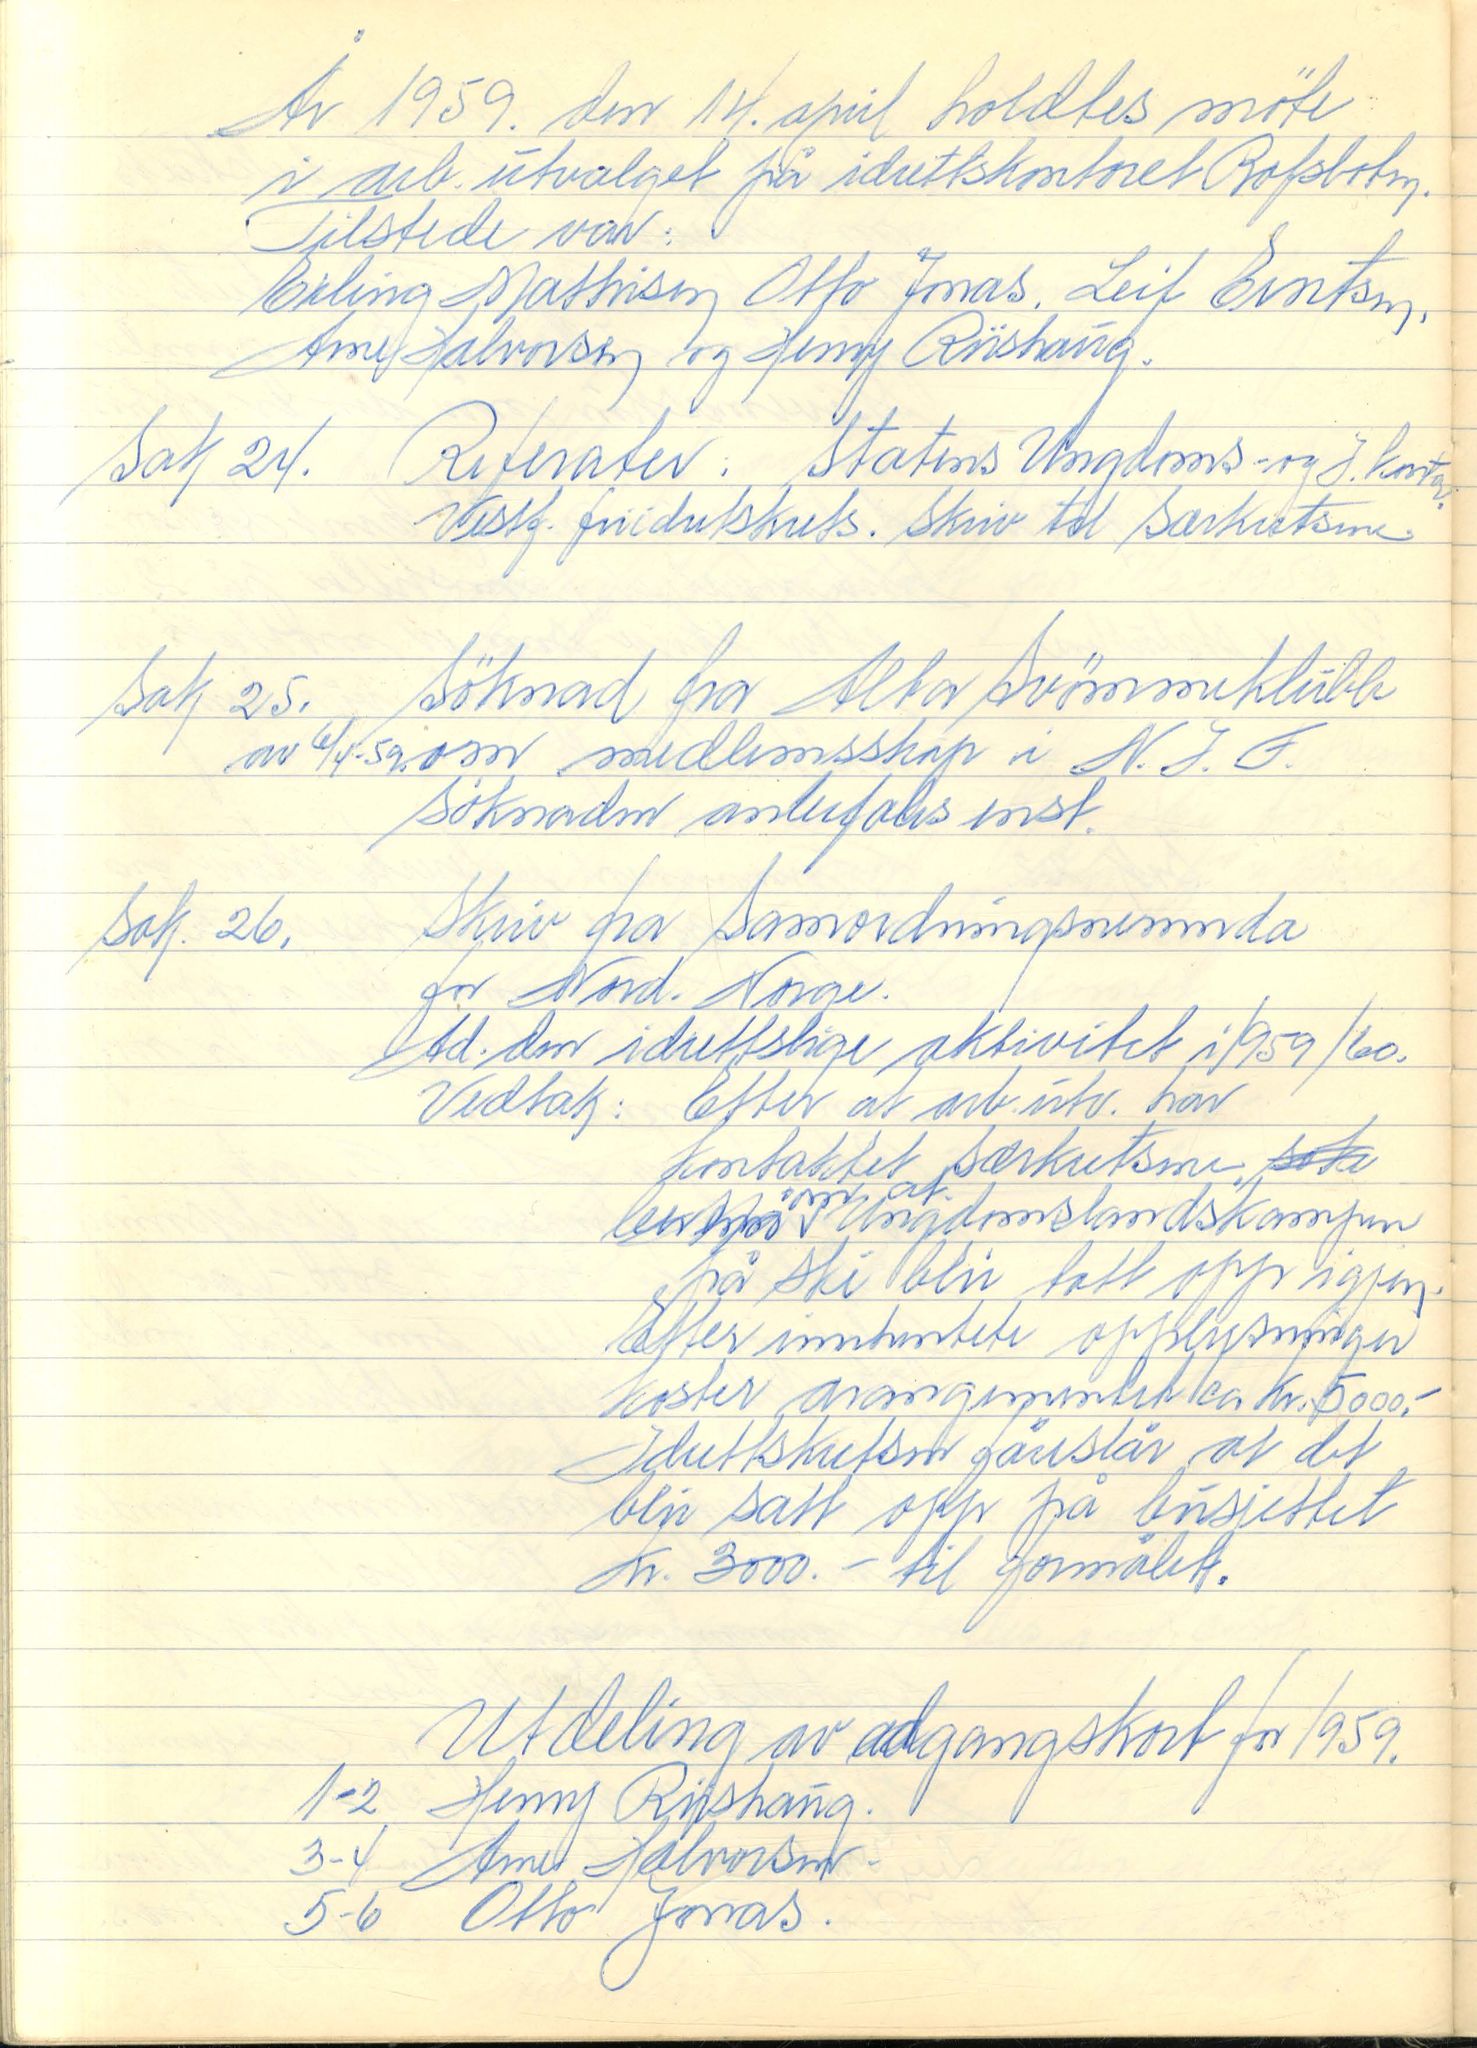 År 1959. den 14. april holdtes möte
i arb. utvalget på idrettskontoret Rofsbotn.
Tilstede var:
Erling Mathisen Otto Jonas. Leif Erntsen.
Arne Halvorsen og Henry Riishaug.
Sak 24. Referater: Statens Ungdoms- og I. kontor.
Vestf. friidretskrets. Skriv til Særkretsene.
Sak 25. Söknad fra Alta Svömmeklubb
av 6/4-59. om medlemsskap i N. I. F.
Söknaden anbefales inst.
Sak. 26. Skriv fra Samordningsnemnda
for Nord. Norge.
Ad. den idrettslige aktivitet i 1959/60.
Vedtak: Etter at arb. utv. har
kontaktet særkretsene,
om at
Ungdomslandskampen
på ski blir tatt opp igjen.
Etter innhentete opplysninger
koster arangementet ca. kr. 5000.-
Idrettskretsen på
at det
blir satt opp på busjettet
kr. 3000.- til formålet.
Utdeling av adgangskort for 1959.
1-2 Henry Riishaug.
3-4 Arne Halvorsen.
5-6 Otto Jonas.